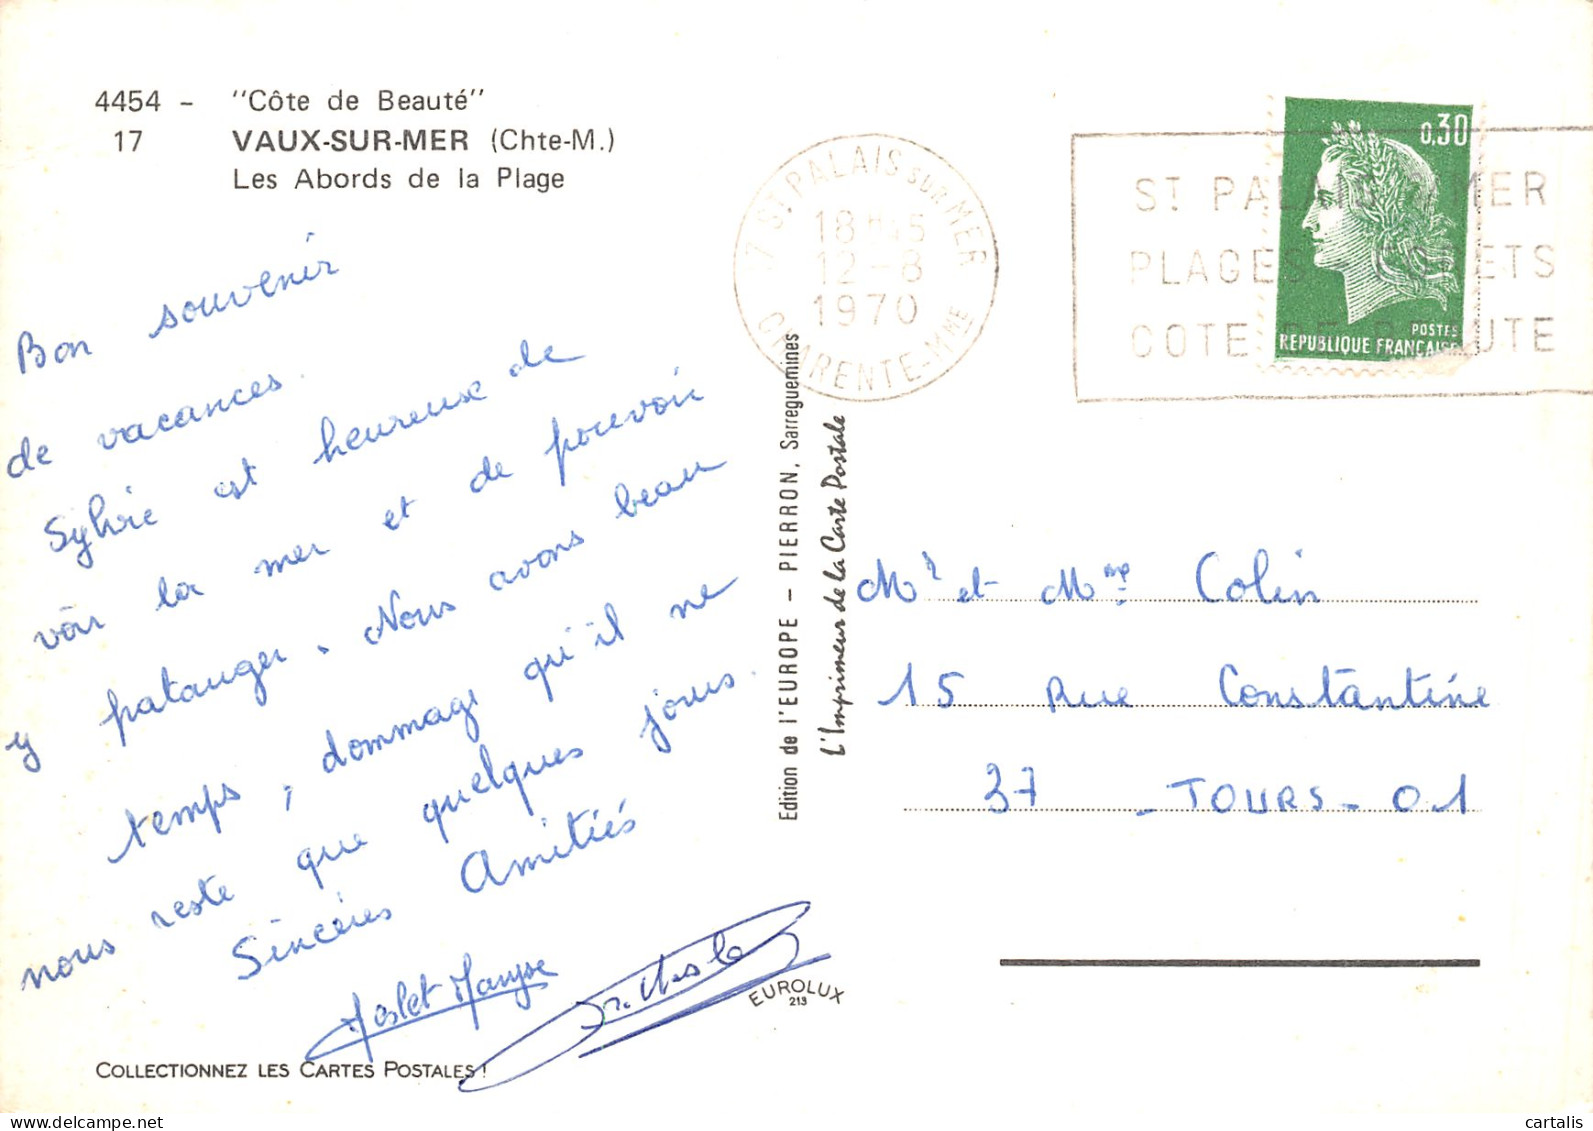 4454 - "Côte de Beauté"
17 VAUX-SUR-MER (Chte-M.)
Les Abords de la Plage
Bon souvenir
de vacances.
Sylvie est heureuse de
voir la mer et de pouvoir
y patauger. Nous avons beau
temps, dommage qu'il ne
nous reste que quelques jours.
Sincères Amitiés
COLLECTIONNEZ LES CARTES POSTALES!
17 ST PALAIS SUR MER
18 H45
12-8
1970
CHARENTE-MME
ST PALAIS MER
PLAGES FORETS
COTE DE BEAUTE
0,30
POSTES
REPUBLIQUE FRANCAISE
Edition de l'EUROPE - PIERRON, Sarreguemines
L'Imprimeur de la Carte Postale
EUROLUX
213
Mr et Mme Colin
15 Rue Constantine
37 - TOURS - 01
cartalis